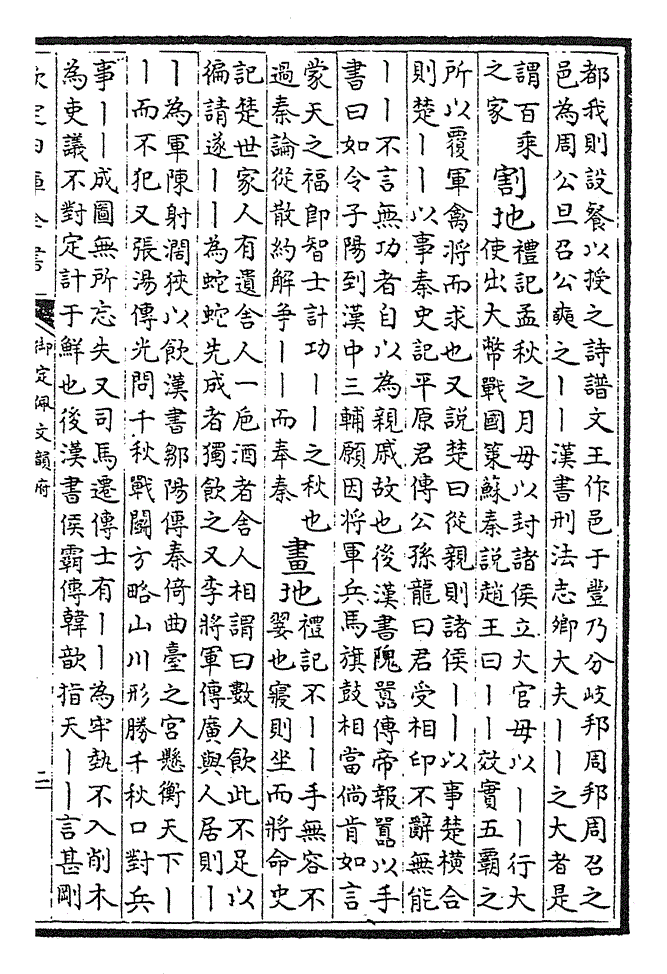 都我則設餐以授之詩譜文王作邑于豐乃分岐邦周邦周召之
邑為周公旦召公奭之丨丨漢書刑法志鄉大夫丨丨之大者是
謂百乘
之家
割地
禮記孟秋之月毋以封諸侯立大官毋以丨丨行大
使出大幣戰國策蘇秦說趙王曰丨丨效實五霸之
所以覆軍禽將而求也又說楚曰從親則諸侯丨丨以事楚橫合
則楚丨丨以事秦史記平原君傳公孫龍曰君受相印不辭無能
丨丨不言無功者自以為親戚故也後漢書隗囂傳帝報囂以手
書曰如令子陽到漢中三輔願因將軍兵馬旗鼓相當倘肯如言
蒙天之福即智士計功丨丨之秋也
過秦論從散約解爭丨丨而奉秦
畫地
禮記不丨丨手無容不
翣也寢則坐而將命史
記楚世家人有遺舍人一巵酒者舍人相謂曰數人飲此不足以
徧請遂丨丨為蛇蛇先成者獨飲之又李將軍傳廣與人居則丨
丨為軍陳射濶狹以飲漢書鄒陽傳秦倚曲臺之宮懸衡天下丨
丨而不犯又張湯傳光問千秋戰鬬方略山川形勝千秋口對兵
事丨丨成圖無所忘失又司馬遷傳士有丨丨為牢埶不入削木
為吏議不對定計于鮮也後漢書侯霸傳韓歆指天丨丨言甚剛
欽定四庫全書
御定佩文韻府
二